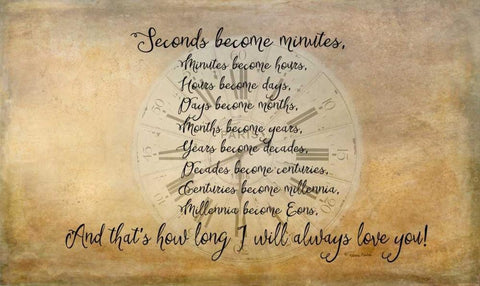 Seconds become minutes,
Minutes become hours,
Hours become days,
Days become months,
Months become years,
PARIS
Years become decades,
Decades become centuries,
Centuries become millennia,
Millennia become Eons,
And that's how long I will always love you!
60
15
45
20